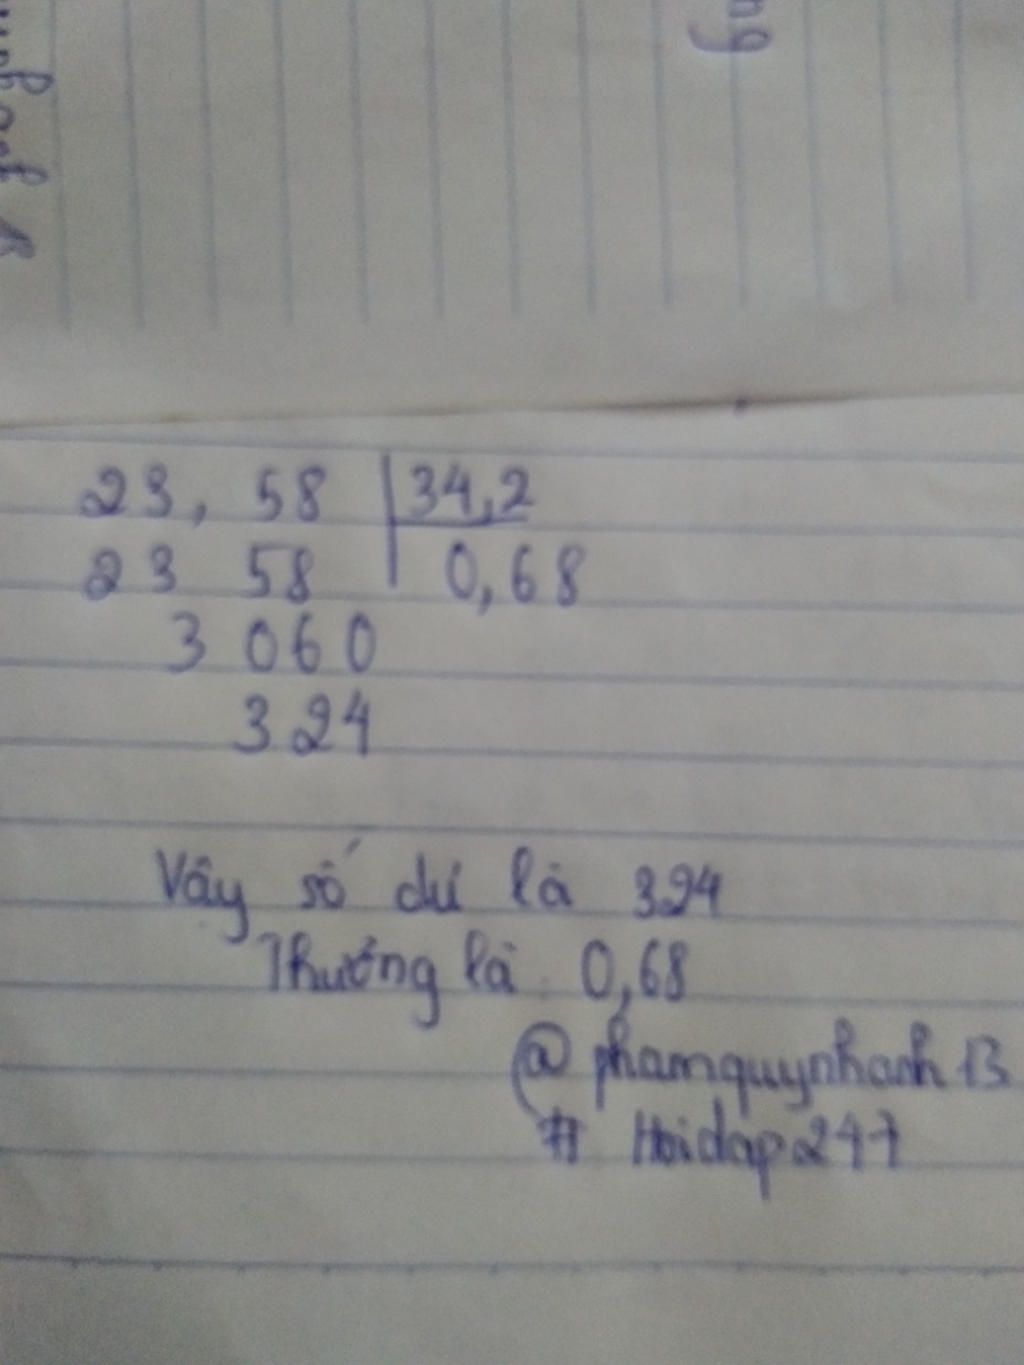 ng
23, 58 | 34,2
23 58 | 0,68
3 060
324
Vây số dú là 324
Thướng là 0,68
@phamquynhanh13
# Hoidap247